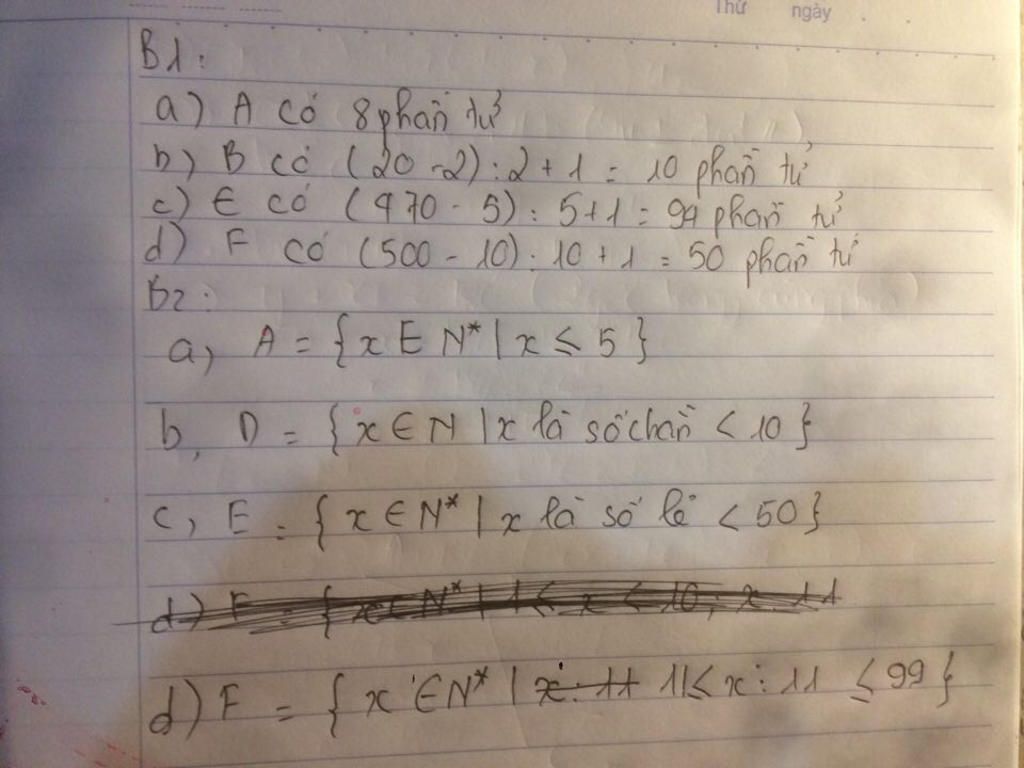 Thứ ngày
B1:
a) A có 8 phần tử
b) B có (20 - 2) : 2 + 1 = 10 phần tử
c) E có (470 - 5) : 5 + 1 = 94 phần tử
d) F có (500 - 10) : 10 + 1 = 50 phần tử
B2:
a, A = {x ∈ N* | x ≤ 5}
b, D = {x ∈ N | x là số chẵn < 10}
c, E = {x ∈ N* | x là số lẻ < 50}
d) F = { x ∈ N* | 1 < x < 10, x 11
d) F = { x ∈ N* | x : 11 11 ≤ x : 11 ≤ 99}